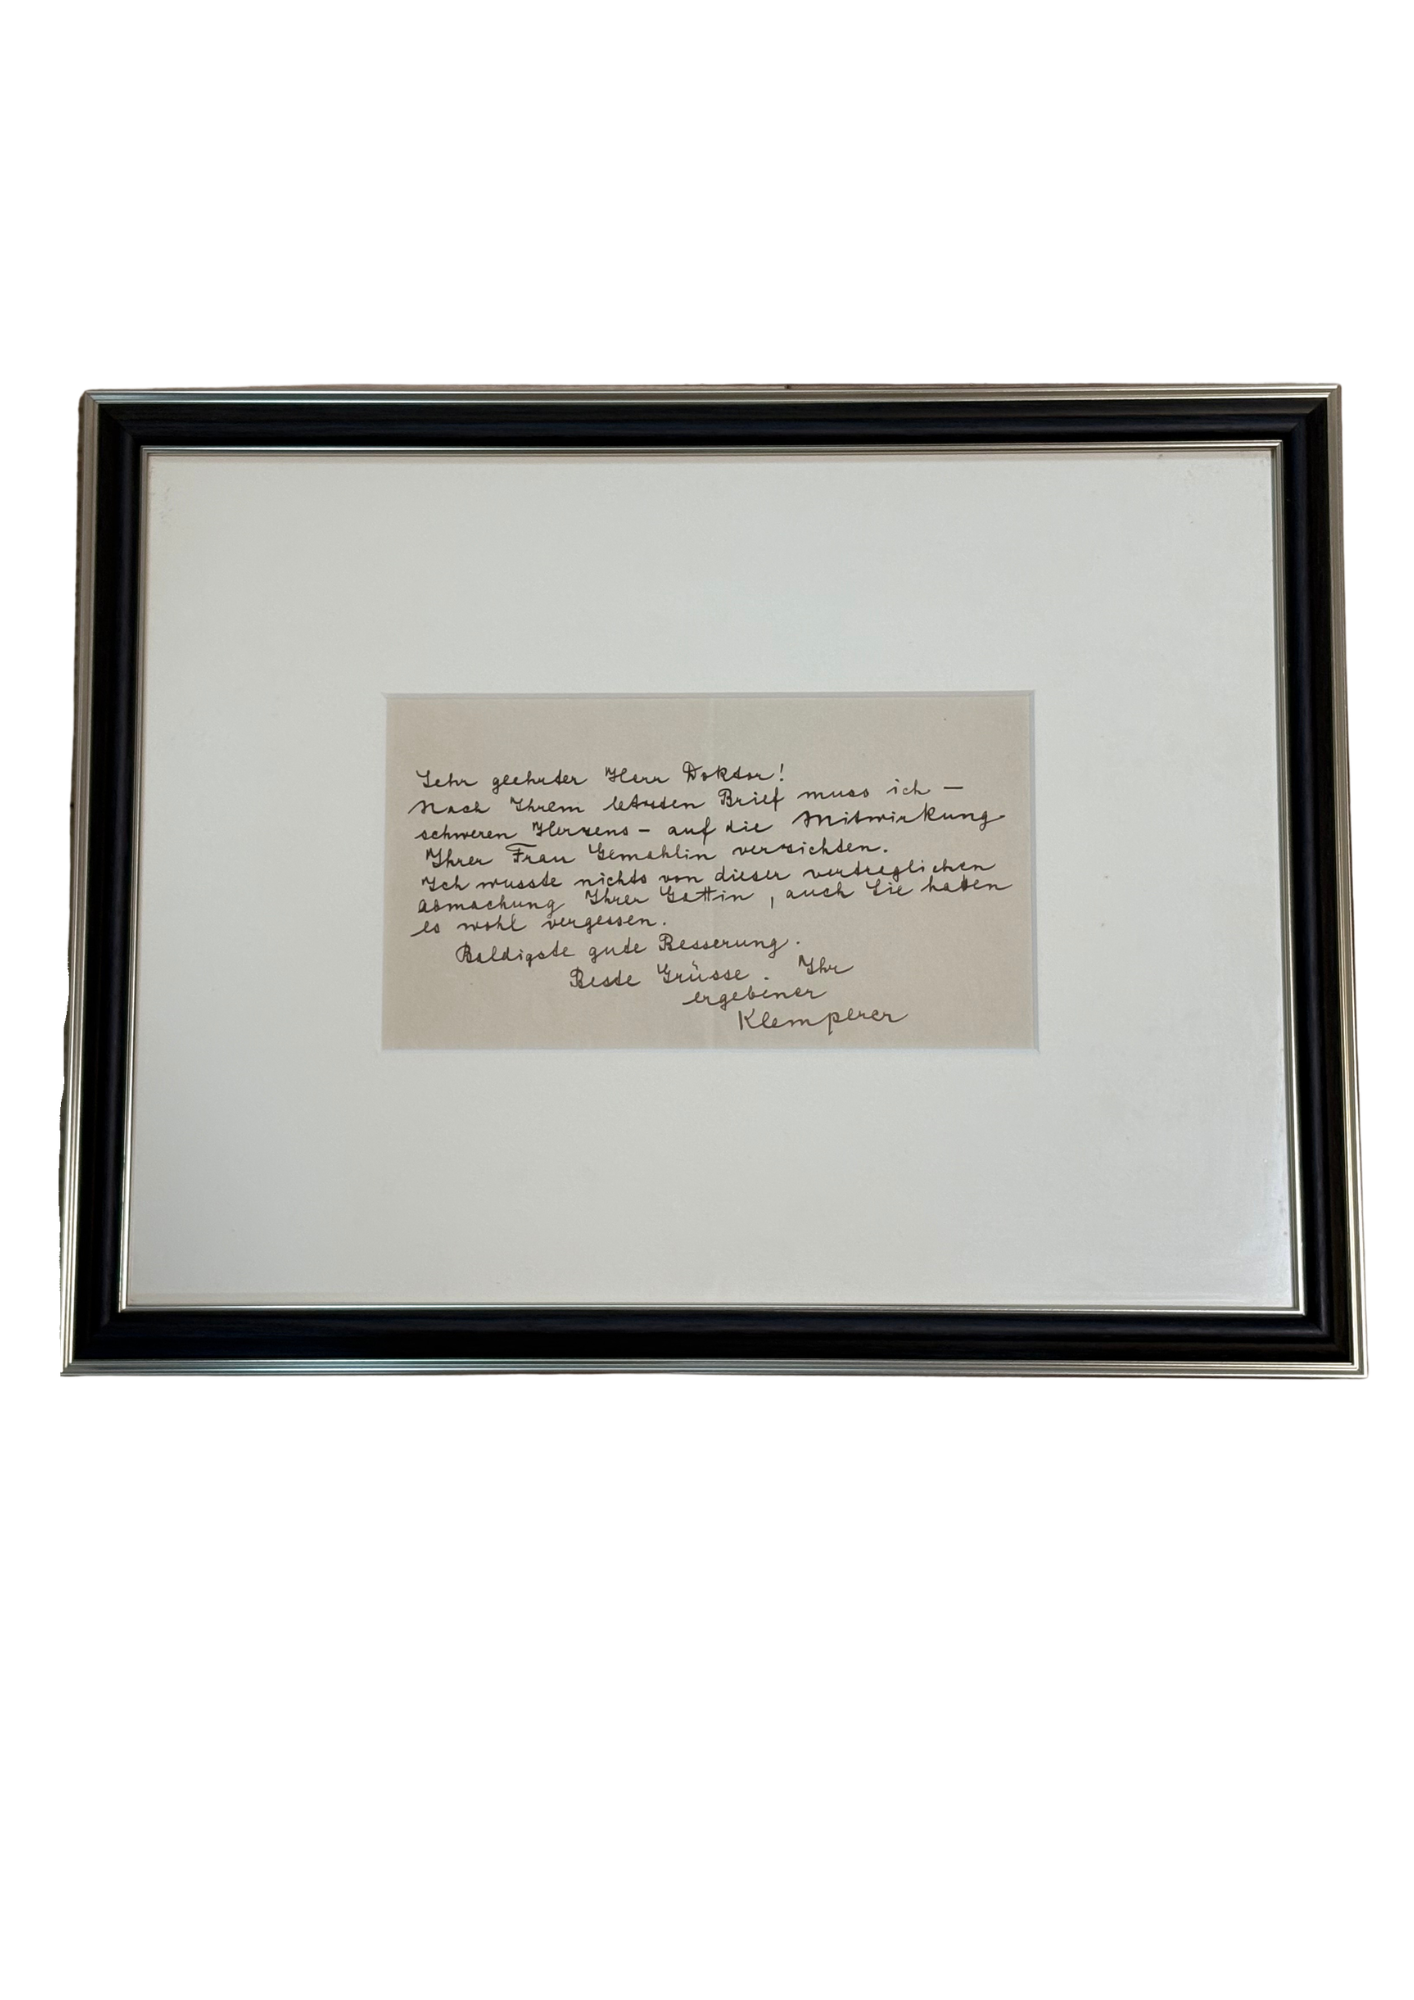 Sehr geehrter Herr Doktor!
Nach Ihrem letzten Brief muss ich –
schweren Herzens – auf die Mitwirkung
Ihrer Frau Gemahlin verzichten.
Ich wusste nichts von dieser vertreglichen
Abmachung Ihrer Gattin, auch Sie haben
es wohl vergessen.
Baldigste gute Besserung.
Beste Grüsse. Ihr
ergebener
Klemperer